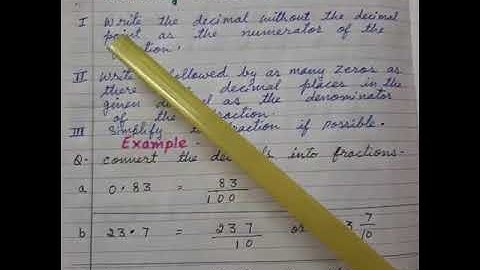 I Write the decimal without the decimal
point as the numerator of the
II Write followed by as many zeros as
there decimal places in the
given as the denominator
of the
III Simplify if possible.
Example -
Q- convert the into fractions-
a 0.83 = 83/100
b 23.7 = 237/10 or 3 7/10